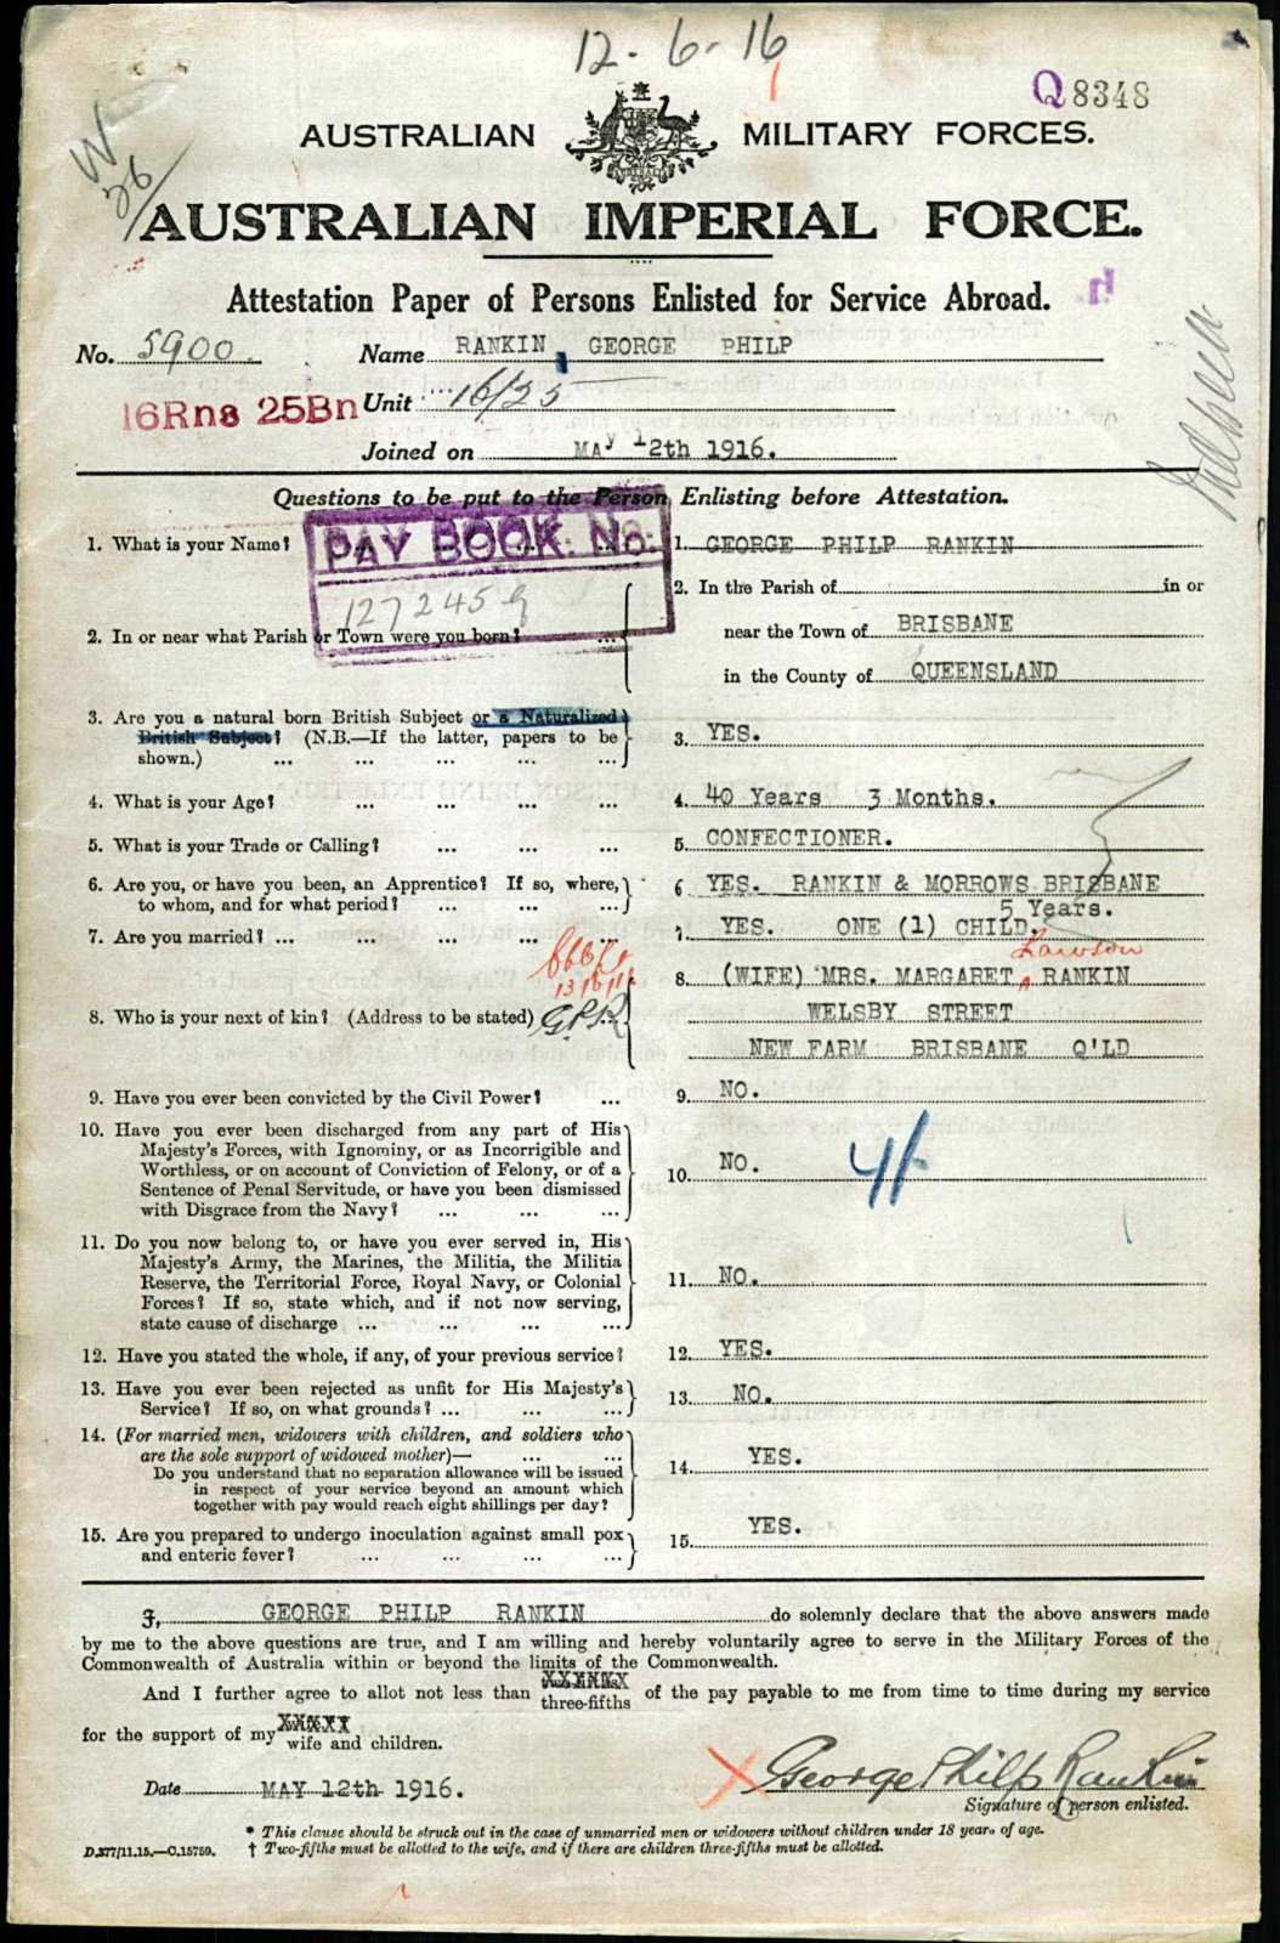 12-6-16
Q8348
AUSTRALIAN MILITARY FORCES.
W
AUSTRALIAN IMPERIAL FORCE.
Attestation Paper of Persons Enlisted for Service Abroad.
No. 5900. Name RANKIN, GEORGE PHILP
16Rns 25Bn Unit 16/25
Joined on MAY 12th 1916.
Questions to be put to the Person Enlisting before Attestation.
PAY BOOK No.
1. What is your Name? ... 1. GEORGE PHILP RANKIN
2. In the Parish of in or
2. In or near what Parish or Town were you born? ... near the Town of BRISBANE
in the County of QUEENSLAND
3. Are you a natural born British Subject or a Naturalized
British Subject? (N.B.—If the latter, papers to be 3. YES.
shown.) ... ... ... ... ...
4. What is your Age? ... ... ... ... 4. 40 Years 3 Months.
5. What is your Trade or Calling? ... ... ... 5. CONFECTIONER.
6. Are you, or have you been, an Apprentice? If so, where, 6 YES. RANKIN & MORROWS BRISBANE
to whom, and for what period? ... ... ... 5 Years.
7. Are you married? ... ... ... ... ... 7. YES. ONE (1) CHILD.
Lawson
8. (WIFE) MRS. MARGARET RANKIN
8. Who is your next of kin? (Address to be stated) GPR WELSBY STREET
NEW FARM BRISBANE Q'LD
9. Have you ever been convicted by the Civil Power? ... 9. NO.
10. Have you ever been discharged from any part of His
Majesty's Forces, with Ignominy, or as Incorrigible and
Worthless, or on account of Conviction of Felony, or of a 10. NO.
Sentence of Penal Servitude, or have you been dismissed
with Disgrace from the Navy? ... ... ...
11. Do you now belong to, or have you ever served in, His
Majesty's Army, the Marines, the Militia, the Militia
Reserve, the Territorial Force, Royal Navy, or Colonial 11. NO.
Forces? If so, state which, and if not now serving,
state cause of discharge ... ... ... ...
12. Have you stated the whole, if any, of your previous service? 12. YES.
13. Have you ever been rejected as unfit for His Majesty's 13. NO.
Service? If so, on what grounds? ... ... ...
14. (For married men, widowers with children, and soldiers who
are the sole support of widowed mother)— ... ...
Do you understand that no separation allowance will be issued 14. YES.
in respect of your service beyond an amount which
together with pay would reach eight shillings per day?
15. Are you prepared to undergo inoculation against small pox 15. YES.
and enteric fever? ... ... ... ...
I, GEORGE PHILP RANKIN do solemnly declare that the above answers made
by me to the above questions are true, and I am willing and hereby voluntarily agree to serve in the Military Forces of the
Commonwealth of Australia within or beyond the limits of the Commonwealth.
And I further agree to allot not less than three-fifths of the pay payable to me from time to time during my service
for the support of my wife and children.
Date MAY 12th 1916. George Philp Rankin
Signature of person enlisted.
* This clause should be struck out in the case of unmarried men or widowers without children under 18 years of age.
D.377/11.15.—C.15759. † Two-fifths must be allotted to the wife, and if there are children three-fifths must be allotted.